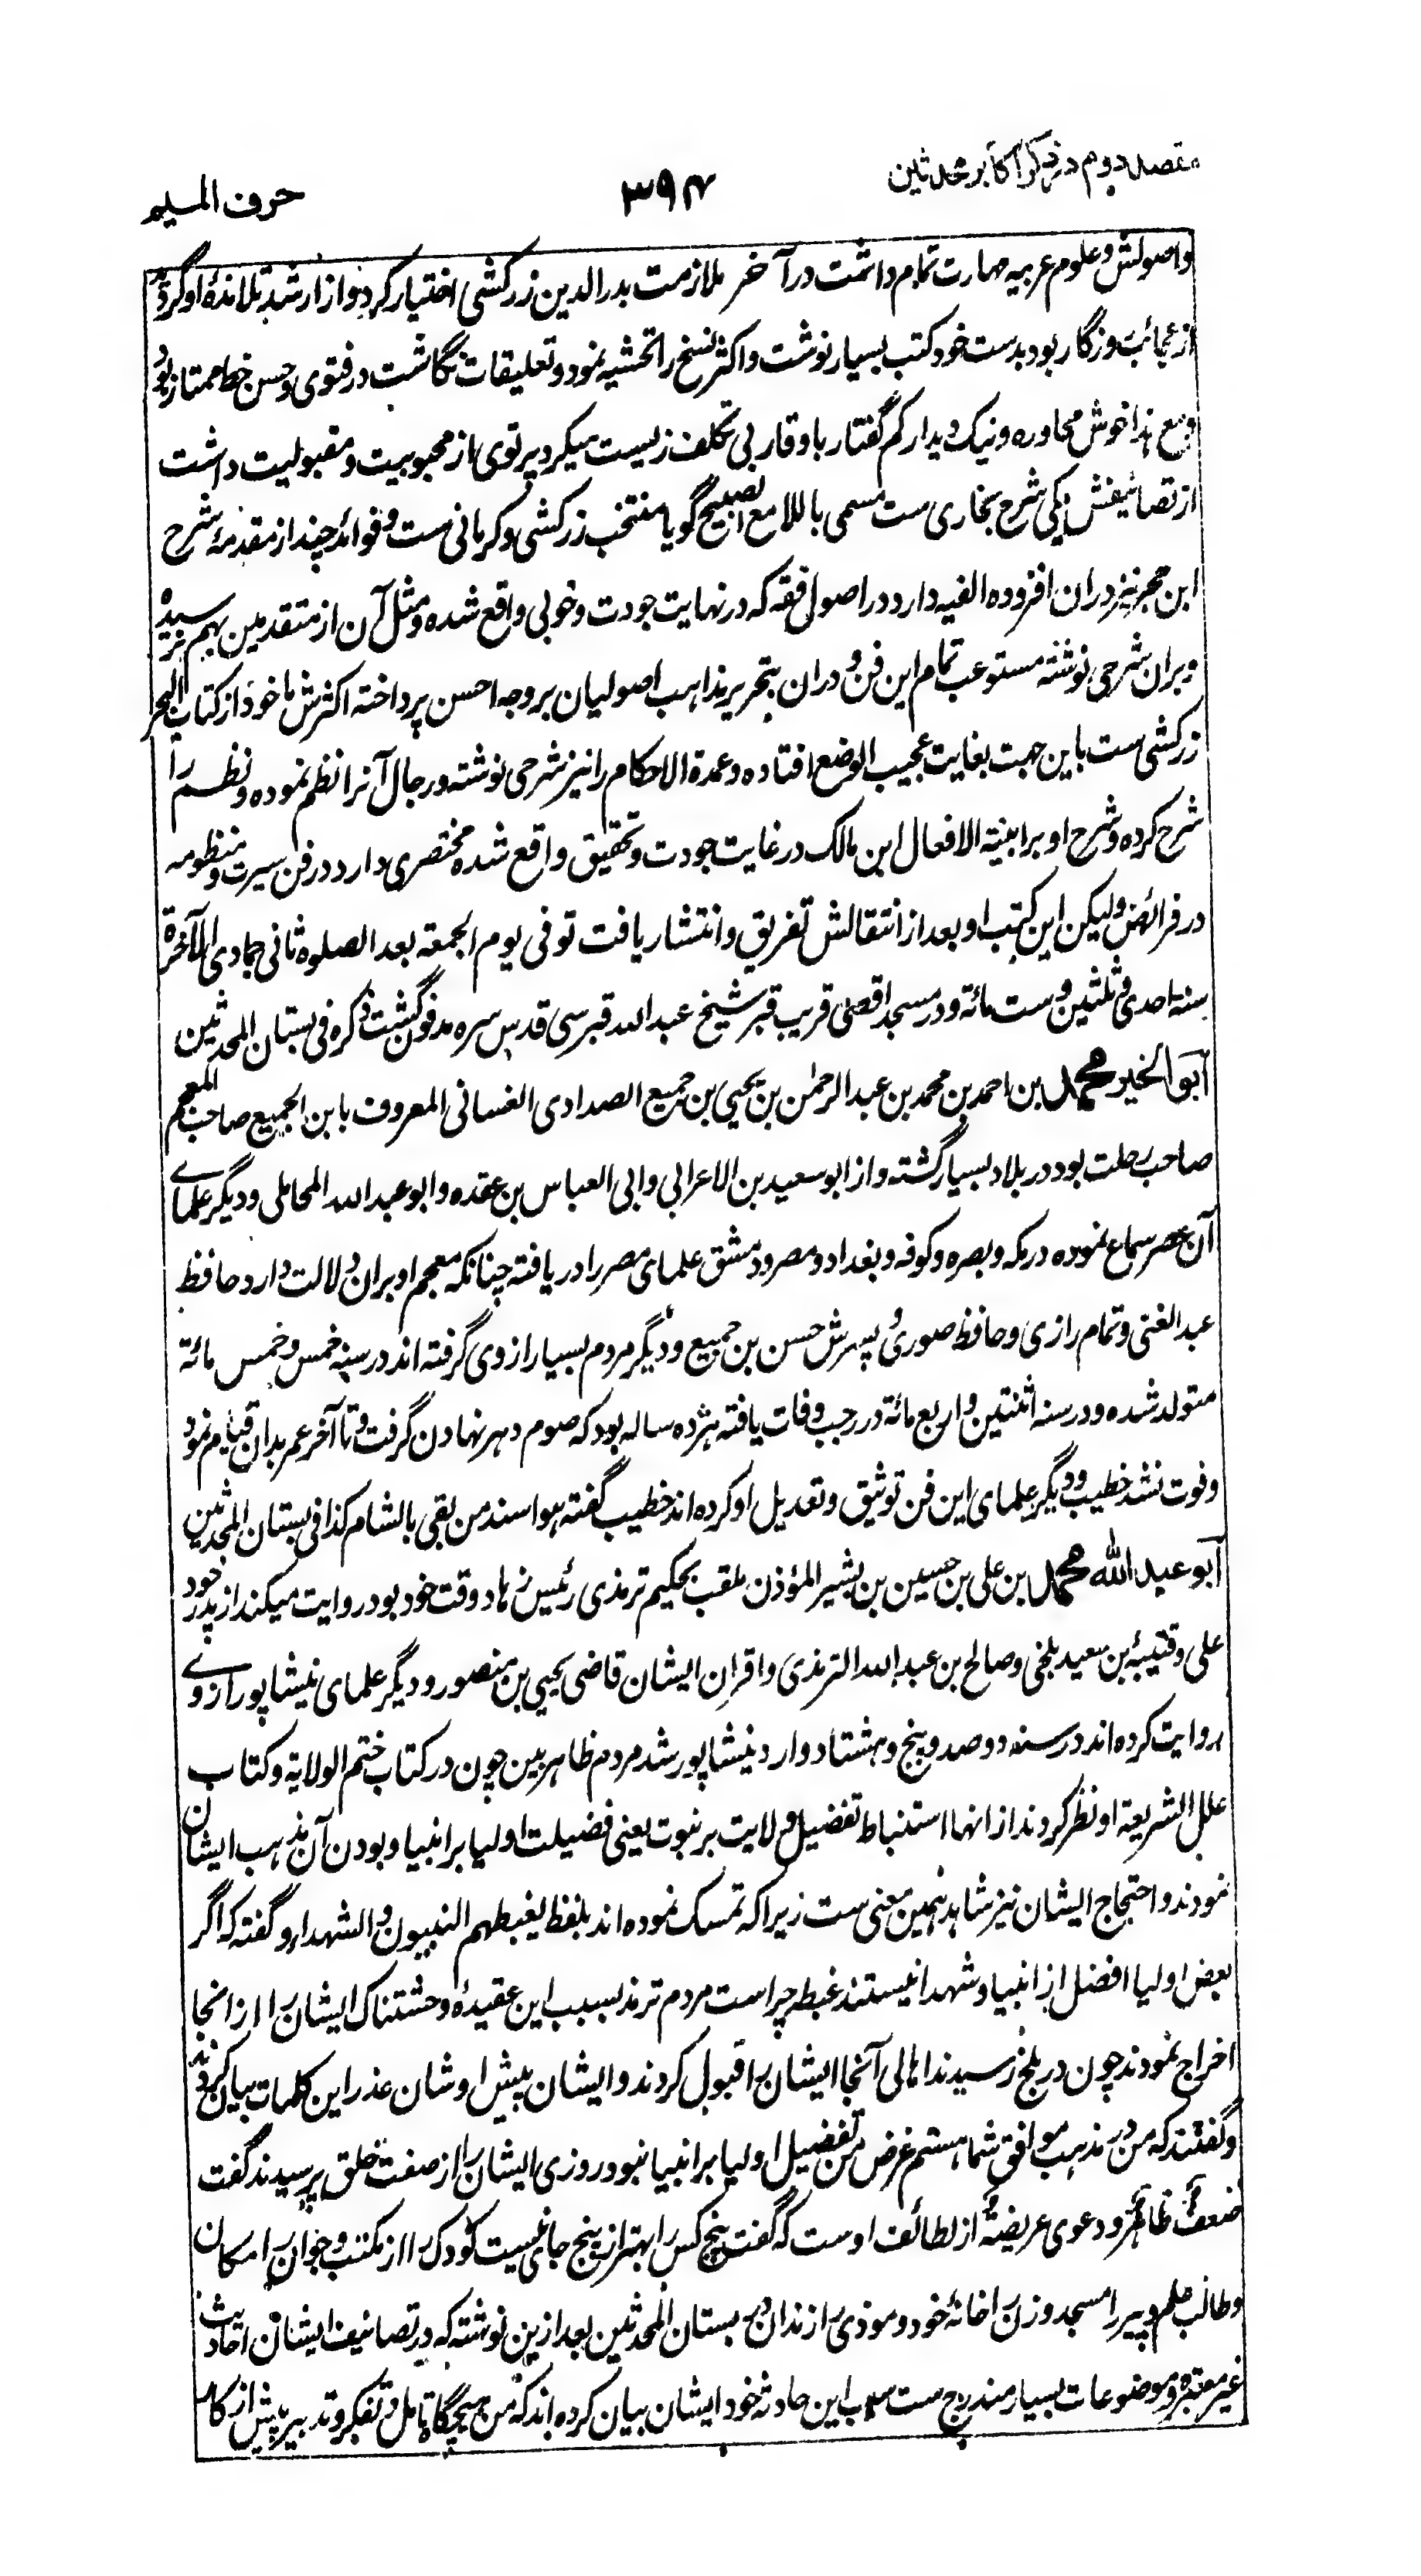 مقصد دوم در ذکر اکابر محدثین
۳۹۴
حرف المیم
واصولش وعلوم عربیه مهارت تمام داشت در آخر ملازمت بدرالدین زرکشی اختیار کرد واز ارشد تلامذۀ او گردید
از عجائب روزگار بود بدست خود کتب بسیار نوشت واکثر نسخ را تحشیه نمود وتعلیقات نگاشت در فتوی وحسن خط ممتاز بود
ومع هذا خوش محاوره ونیک دیدار کم گفتار باوقار بی تکلف زیست میکرد پرتوی از محبوبیت ومقبولیت داشت
از تصانیفش یکی شرح بخاری ست مسمی باللامع الصبیح گویا منتخب زرکشی وکرمانی ست وفوائد چند از مقدمۀ شرح
ابن حجر نیز دران افزوده الفیه دارد در اصول فقه که در نهایت جودت وخوبی واقع شده ومثل آن از متقدمین بهم نرسیده
وبران شرحی نوشته مستوعب تمام این فن ودران بتحریر مذاهب اصولیان بروجه احسن پرداخته اکثرش ماخوذ از کتاب البحر
زرکشی ست باین جهت بغایت عجیب الوضع افتاده وعمدة الاحکام را نیز شرحی نوشته ورجال آنرا نظم نموده ونظم را
شرح کرده وشرح او بر ابنیة الافعال ابن مالک در غایت جودت وتحقیق واقع شده مختصری دارد در فن سیرت ومنظومه
در فرائض ولیکن این کتب او بعد از انتقالش تفریق وانتشار یافت توفی یوم الجمعة بعد الصلوة ثانی جمادی الآخرة
سنة احدی وثلثین وست مائة ودر مسجد اقصی قریب قبر شیخ عبدالله قبرسی قدس سره مدفون گشت ذکره فی بستان المحدثین
ابو الخیر محمد بن احمد بن محمد بن عبدالرحمن بن یحیی بن جمیع الصدادی الغسانی المعروف بابن الجمیع صاحب المعجم
صاحب رحلت بود در بلاد بسیار گشته واز ابوسعید بن الاعرابی وابی العباس بن عقده وابوعبدالله المحاملی ودیگر علمای
آن عصر سماع نموده در مکه وبصره وکوفه وبغداد ومصر ودمشق علمای مصر را دریافته چنانکه معجم او بران دلالت دارد حافظ
عبدالغنی وتمام رازی وحافظ صوری وپسرش حسن بن جمیع ودیگر مردم بسیار از وی گرفته اند در سنه خمس وخمس مائة
متولد شده ودر سنه اثنتین واربع مائة در رجب وفات یافته هژده ساله بود که صوم دهر نهادن گرفت وتا آخر عمر بدان قیام نمود
وفوت نشد خطیب ودیگر علمای این فن توثیق وتعدیل او کرده اند خطیب گفته هو اسند من بقی بالشام کذا فی بستان المحدثین
ابو عبد الله محمد بن علی بن حسین بن بشیر المؤذن ملقب بحکیم ترمذی رئیس زهاد وقت خود بود روایت میکند از پدر خود
علی وقتیبۀ بن سعید بلخی وصالح بن عبدالله الترمذی واقران ایشان قاضی یحیی بن منصور ودیگر علمای نیشاپور از وی
روایت کرده اند در سنه دوصد وپنج وهشتاد وارد نیشاپور شد مردم ظاهربین چون در کتاب ختم الولایة وکتاب
علل الشریعة او نظر کردند از انها استنباط تفضیل ولایت بر نبوت یعنی فضیلت اولیا بر انبیا وبودن آن مذهب ایشان
نمودند واحتجاج ایشان نیز شاهد همین معنی ست زیراکه تمسک نموده اند بلفظ یغبطهم النبیون والشهداء وگفته که اگر
بعض اولیا افضل از انبیا وشهدا نیستند غبطه چراست مردم ترمذ بسبب این عقیدۀ وحشتناک ایشان را از انجا
اخراج نمودند چون در بلخ رسیدند اهالی آنجا ایشان را قبول کردند وایشان پیش اوشان عذر این کلمات بیان کردند
وگفتند که من در مذهب موافق شما هستم غرض من تفضیل اولیا بر انبیا نبود روزی ایشان را از صفت خلق پرسیدند گفت
ضعف ظاهر ودعوی عریضة از لطائف اوست که گفت پنج کس را بهتر از پنج جای نیست کودک را از مکتب وجوان را مکان
وطالب علم وپیر را مسجد وزن را خانۀ خود وموذی را زندان در بستان المحدثین بعد ازین نوشته که در تصانیف ایشان احادیث
غیر معتبره وموضوعات بسیار مندرج ست سبب این حادثه خود ایشان بیان کرده اند که من هیچگاه تامل وتفکر وتدبیر پیش از کار